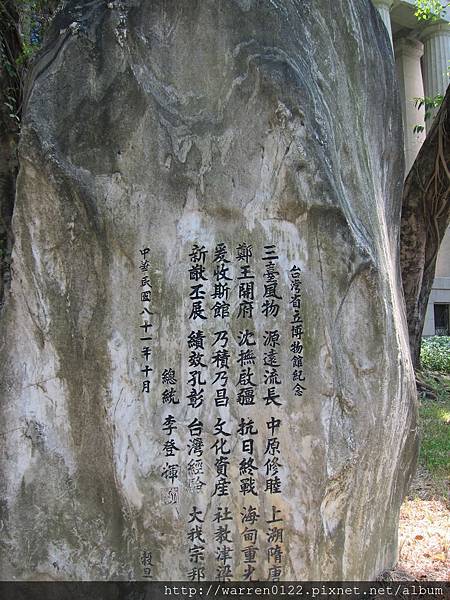 台灣省立博物館紀念
三臺風物 源遠流長 中原修睦 上溯隋唐
鄭王開府 沈撫啟疆 抗日終戰 海甸重光
爰收斯館 乃積乃昌 文化資產 社教津梁
新猷丕展 績效孔彰 台灣經驗 大我宗邦
總統 李登輝
中華民國八十一年十月
穀旦
http://warren0122.pixnet.net/album